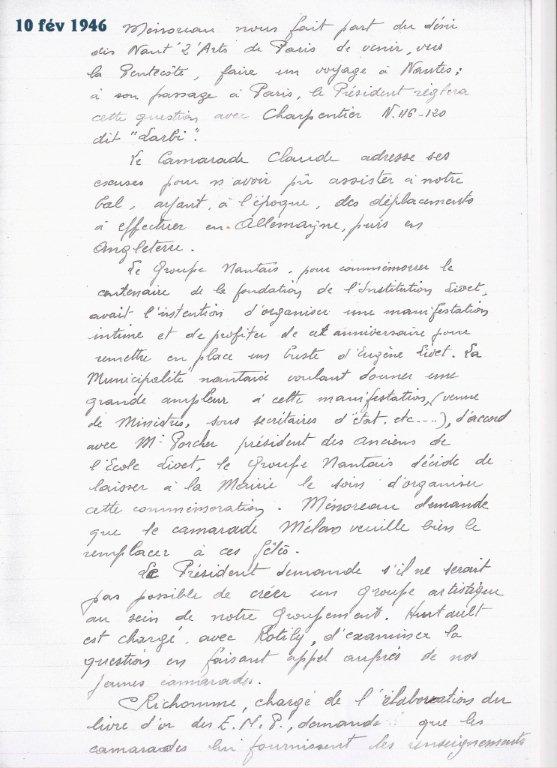 10 fév 1946
Ménoreau nous fait part du désir
des Nant'2'Arts de Paris de venir, vers
la Pentecôte, faire un voyage à Nantes ;
à son passage à Paris, le Président règlera
cette question avec Charpentier N.116-120
dit "Larbi".
Le Camarade Claude adresse ses
excuses pour n'avoir pû assister à notre
bal, ayant, à l'époque, des déplacements
à effectuer en Allemagne, puis en
Angleterre.
Le Groupe Nantais, pour commémorer le
centenaire de la fondation de l'Institution Livet,
avait l'intention d'organiser une manifestation
intime et de profiter de cet anniversaire pour
remettre en place un buste d'Eugène Livet. La
Municipalité nantaise voulant donner une
grande ampleur à cette manifestation, (venue
de Ministres, sous secrétaires d'état, etc....), d'accord
avec Mr Porcher président des anciens de
l'Ecole Livet, le Groupe Nantais décide de
laisser à la Mairie le soin d'organiser
cette commémoration. Ménoreau demande
que le camarade Mélan veuille bien le
remplacer à ces fêtes.
Le Président demande s'il ne serait
pas possible de créer un groupe artistique
au sein de notre Groupement. Hurtault
est chargé, avec Rotily, d'examiner la
question en faisant appel auprès de nos
jeunes camarades.
Richomme, chargé de l'élaboration du
livre d'or des E.N.P., demande que les
camarades lui fournissent les renseignements